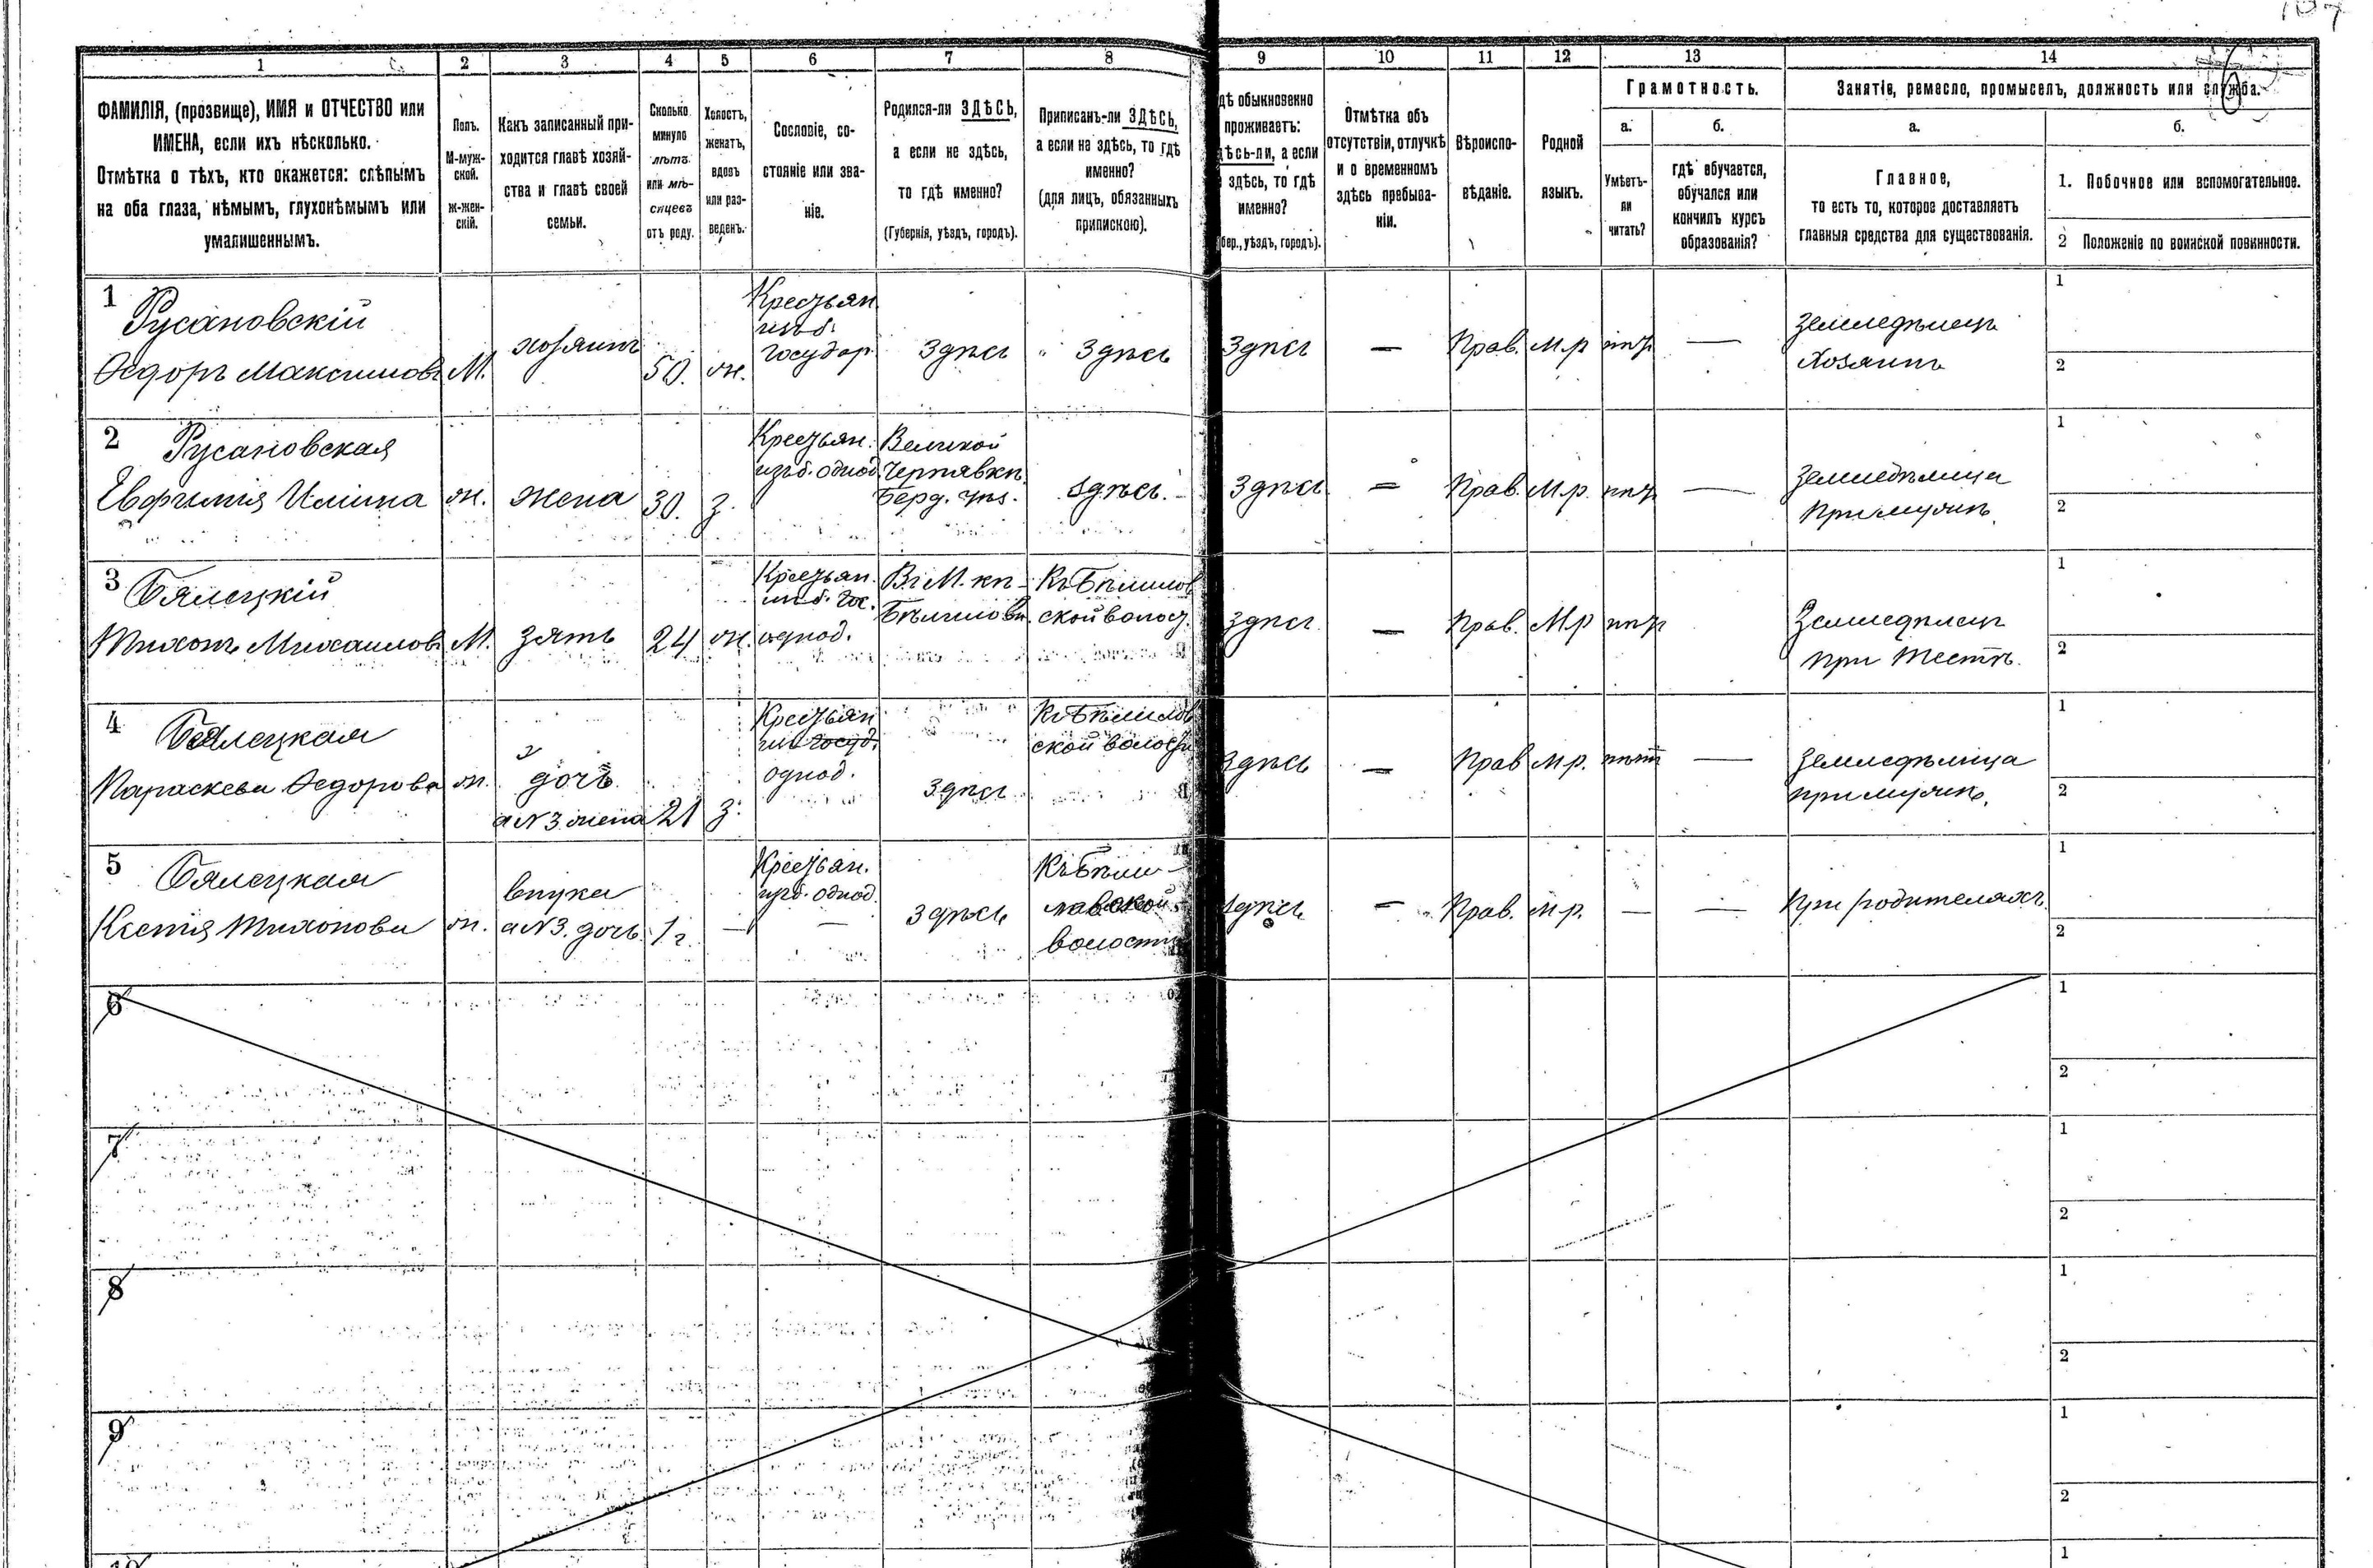 1
2
3
4
5
6
7
8
9
10
11
12
13
14
ФАМИЛІЯ, (прозвище), ИМЯ и ОТЧЕСТВО или
ИМЕНА, если ихъ нѣсколько.
Отмѣтка о тѣхъ, кто окажется: слѣпымъ
на оба глаза, нѣмымъ, глухонѣмымъ или
умалишеннымъ.
Полъ.
М-муж-
ской.
ж-жен-
скій.
Какъ записанный при-
ходится главѣ хозяй-
ства и главѣ своей
семьи.
Сколько
минуло
лѣтъ
или мѣ-
сяцевъ
отъ роду.
Холостъ,
женатъ,
вдовъ
или раз-
веденъ.
Сословіе, со-
стояніе или зва-
ніе.
Родился-ли ЗДѢСЬ,
а если не здѣсь,
то гдѣ именно?
(Губернія, уѣздъ, городъ).
Приписанъ-ли ЗДѢСЬ,
а если не здѣсь, то гдѣ
именно?
(для лицъ, обязанныхъ
припискою).
дѣ обыкновенно
проживаетъ:
дѣсь-ли, а если
здѣсь, то гдѣ
именно?
бер., уѣздъ, городъ).
Отмѣтка объ
отсутствіи, отлучкѣ
и о временномъ
здѣсь пребыва-
ніи.
Вѣроиспо-
вѣданіе.
Родной
языкъ.
Грамотность.
а.
Умѣетъ-
ли
читать?
б.
гдѣ обучается,
обучался или
кончилъ курсъ
образованія?
Занятіе, ремесло, промыселъ, должность или служба.
а.
Главное,
то есть то, которое доставляетъ
главныя средства для существованія.
б.
1. Побочное или вспомогательное.
2 Положеніе по воинской повинности.
1
Русановскій
Ѳедоръ Максимовъ
М.
хозяинъ
50.
ж.
Крестьян
изъ б.
государ.
Здѣсь
Здѣсь
Здѣсь
—
Прав.
М.р
нѣт
—
Земледѣлецъ
Хозяинъ
1
2
2
Русановская
Евфимія Ильина
ж.
жена
30.
з.
Крестьян.
изъ б. однод.
Великой
Чернявкѣ
Берд. уѣз.
Здѣсь.
Здѣсь
—
Прав.
М.р.
нѣт
—
Земледѣлица
При мужѣ
1
2
3
Бялецкій
Тихонъ Михаиловъ
М.
зять
24
ж.
Крестьян.
из б. гос.
однод.
Въ М. кѣ
Бѣлиловк.
Къ Бѣлилов
ской волост.
Здѣсь
—
Прав.
М.р
нѣт
Земледѣлецъ
При тестѣ.
1
2
4
Бялецкая
Параскева Ѳедорова
ж.
дочь
а №3 жена
21
з.
Крестьян
изъ госуд.
однод.
Здѣсь
Къ Бѣлилов
ской волости
Здѣсь
—
Прав
М.р.
нѣт
—
Земледѣлица
при мужѣ.
1
2
5
Бялецкая
Ксенія Тихонова
ж.
внука
а №3. дочь
1 г.
—
Крестьян.
изъ б. однод.
—
Здѣсь
Къ Бѣли-
ловской
волости
Здѣсь
—
Прав.
М.р.
—
—
При родителяхъ.
1
2
6
1
2
7
1
2
8
1
2
9
1
2
1